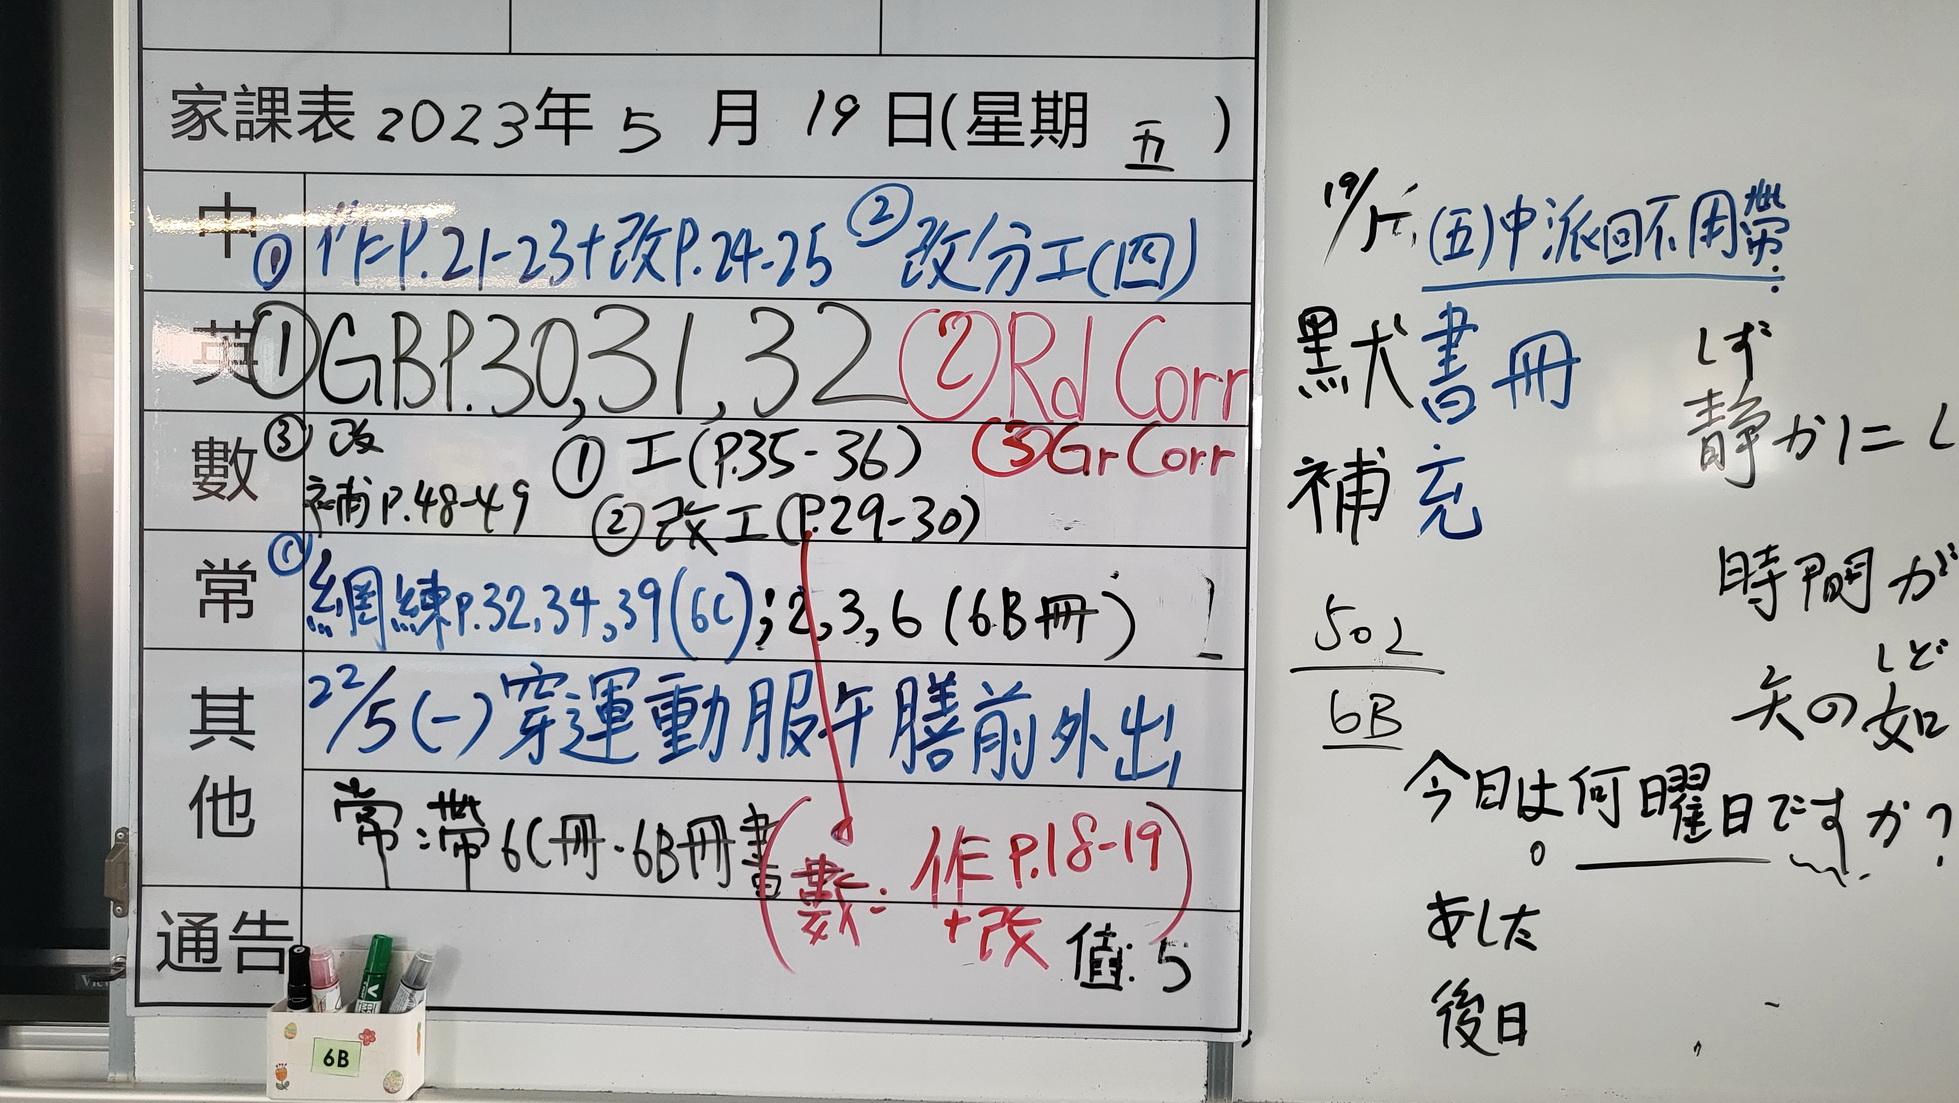 家課表 2023年 5 月 19 日(星期 五 )
中 ① 作P.21-23+改P.24-25 ② 改分工(四)
英 ① GBP.30,31,32 ② Rd Corr
③ Gr Corr
數 ① 工(P.35-36)
② 改工(P.29-30)
③ 改
補P.48-49
常 ① 網練P.32,34,39(6C);2,3,6(6B冊)
其他 22/5(一)穿運動服午膳前外出
常:帶6C冊.6B冊書
(數: 作P.18-19
+改)
通告
值:5
6B
19/5(五)中派回不用帶:
默書冊
補充
502
6B
しず
静かにし
時間が
しど
矢の如
今日は何曜日ですか?
あした
後日